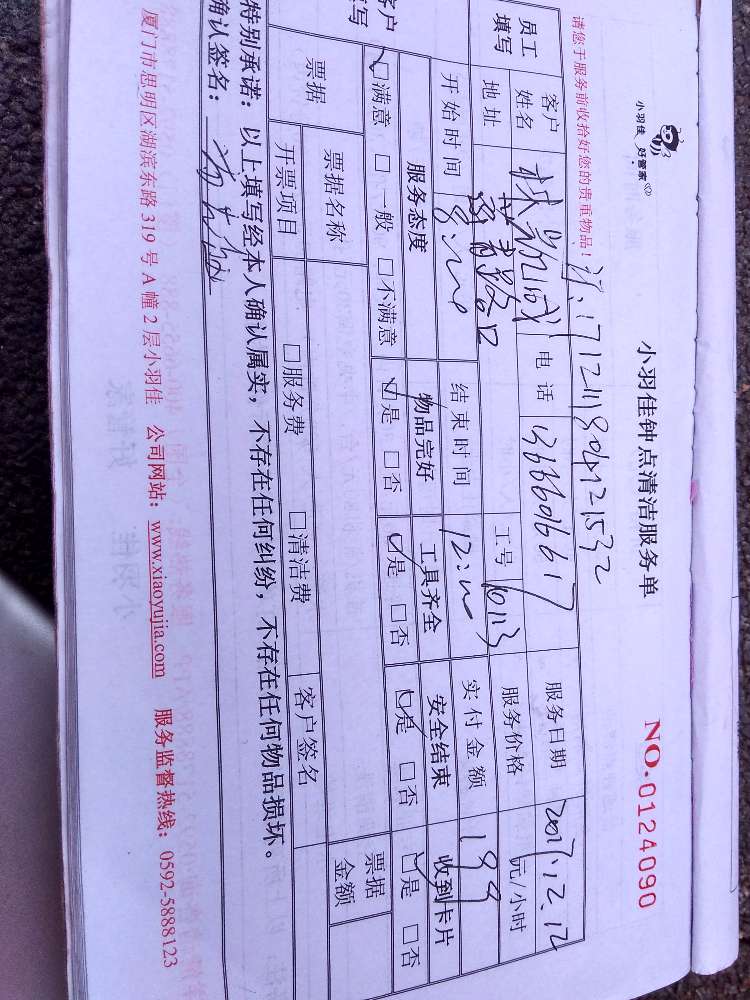 小羽佳 好管家
小羽佳钟点清洁服务单
NO.0124090
请您于服务前收拾好您的贵重物品！
1712111804121532
员工填写 客户姓名 电话 13666016617 服务日期 2017.12.12
地址 工号 10113 服务价格 元/小时
客户填写 开始时间 8:00 结束时间 12:00 实付金额 199
服务态度 物品完好 工具齐全 安全结束 收到卡片
☑满意 □一般 □不满意 ☑是 □否 ☑是 □否 ☑是 □否 ☑是 □否
票据 票据名称 票据金额
开票项目 □服务费 □清洁费 客户签名
特别承诺：以上填写经本人确认属实，不存在任何纠纷，不存在任何物品损坏。
确认签名：
厦门市思明区湖滨东路319号A幢2层小羽佳 公司网站：www.xiaoyujia.com 服务监督热线：0592-5888123